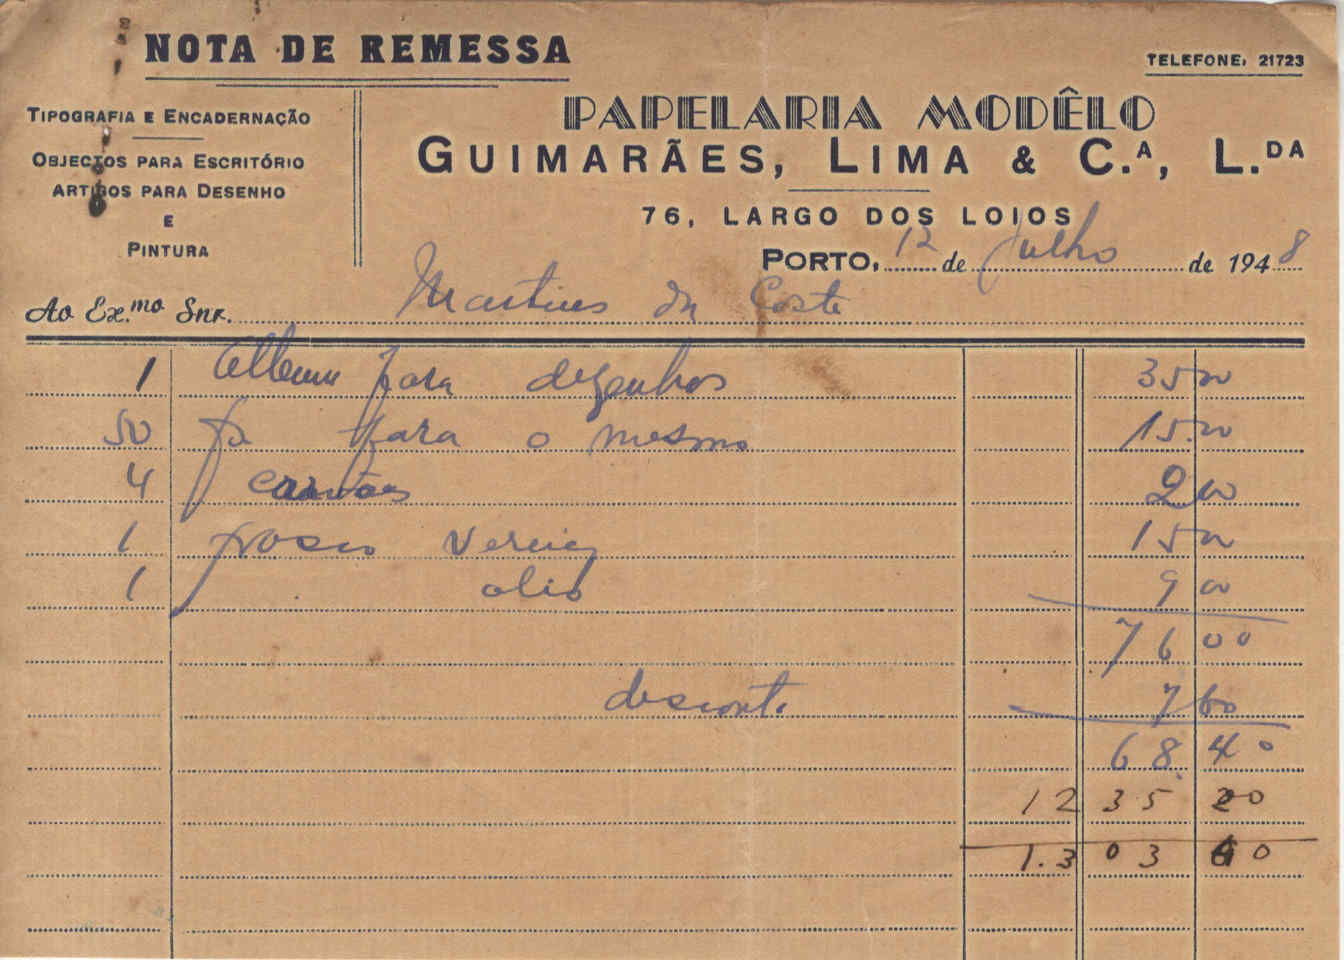 NOTA DE REMESSA
TELEFONE, 21723
TIPOGRAFIA E ENCADERNAÇÃO
OBJECTOS PARA ESCRITÓRIO
ARTIGOS PARA DESENHO
E
PINTURA
PAPELARIA MODÊLO
GUIMARÃES, LIMA & C.A, L.DA
76, LARGO DOS LOIOS
PORTO, 12 de Julho de 1948
Ao Ex.mo Snr. Martins da Costa
1 Album para dezenhos 35 00
50 fs para o mesmo 15.00
4 cartões 2 00
1 frasco verniz 15 00
1 olio 9 00
76 00
desconto 7 60
68.40
1235 20
1.303 60